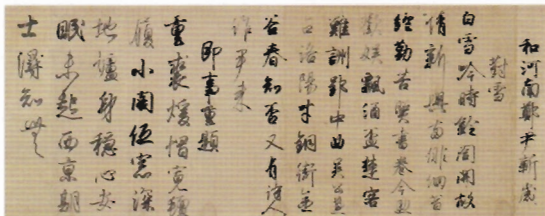 和河南鄭尹新歲
對雪
白雪吟時鈴閣開故
情新興兩俳佪昔
經勤苦照書卷今助
歡娛飄酒盃楚客
難詶郢中曲吳公兼
占洛陽才銅街金
谷春知否又有詩人
作尹來
即事重題
重裘煖帽寬氊
履小閣低窓深
地爐身穩心安
眠未起西京朝
士得知無